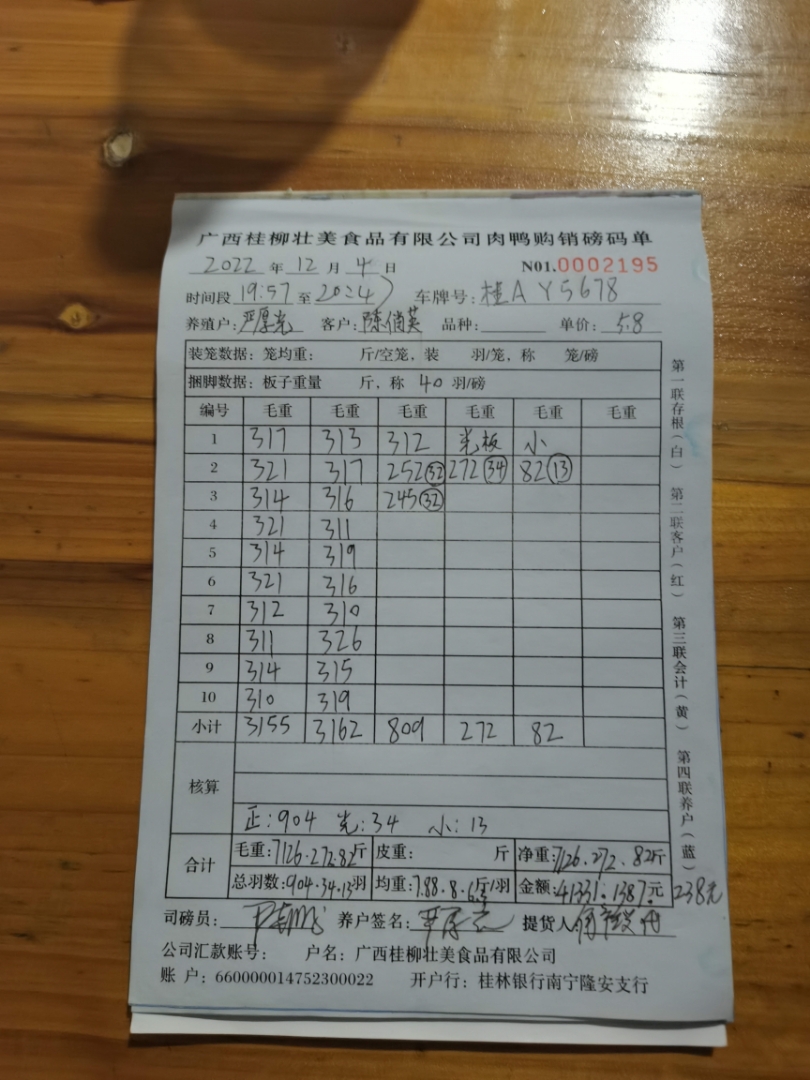 广西桂柳壮美食品有限公司肉鸭购销磅码单
2022 年 12 月 4 日 N01.0002195
时间段 19:57 至 20:47 车牌号: 桂A Y5678
养殖户: 严厚光 客户: 陈俏英 品种: 单价: 5.8
装笼数据: 笼均重: 斤/空笼, 装 羽/笼, 称 笼/磅
捆脚数据: 板子重量 斤, 称 40 羽/磅
编号 毛重 毛重 毛重 毛重 毛重 毛重
1 317 313 312 光板 小
2 321 317 252(32) 272(34) 82(13)
3 314 316 245(32)
4 321 311
5 314 319
6 321 316
7 312 310
8 311 326
9 314 315
10 310 319
小计 3155 3162 809 272 82
核算
正:904 光:34 小:13
合计 毛重:7126.272.82斤 皮重: 斤 净重:7126.272.82斤
总羽数:904.34.13羽 均重:7.88.8.6.3斤/羽 金额:41331.1387.元 238元
司磅员: 养户签名: 严厚光 提货人
公司汇款账号: 户名: 广西桂柳壮美食品有限公司
账 户: 660000014752300022 开户行: 桂林银行南宁隆安支行
第一联存根(白) 第二联客户(红) 第三联会计(黄) 第四联养户(蓝)